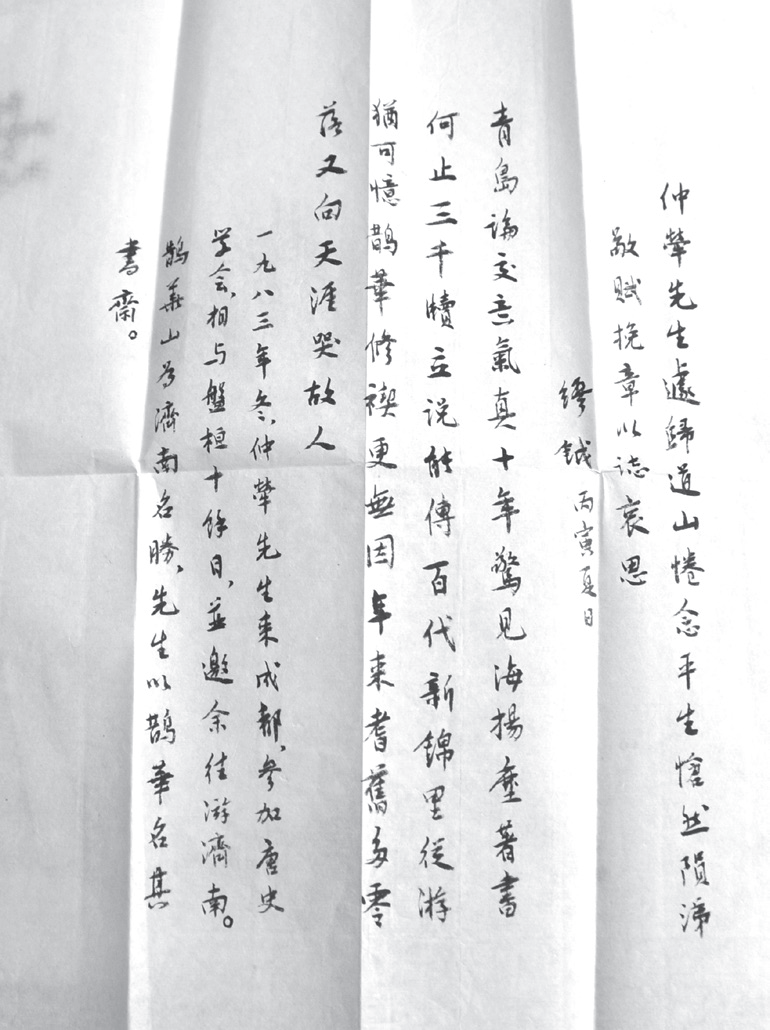 仲犖先生遽歸道山惓念平生愴然隕涕
敬賦挽章以誌哀思
繆鉞 丙寅夏日
青島論交意氣真十年驚見海揚塵著書
何止三千牘立說能傳百代新錦里從游
猶可憶鵲華修禊更無因年來耆舊多零
落又向天涯哭故人
一九八三年冬,仲犖先生来成都,參加唐史
学会,相与盤桓十餘日,並邀余往游濟南。
鵲華山为濟南名勝,先生以鵲華名其
書齋。